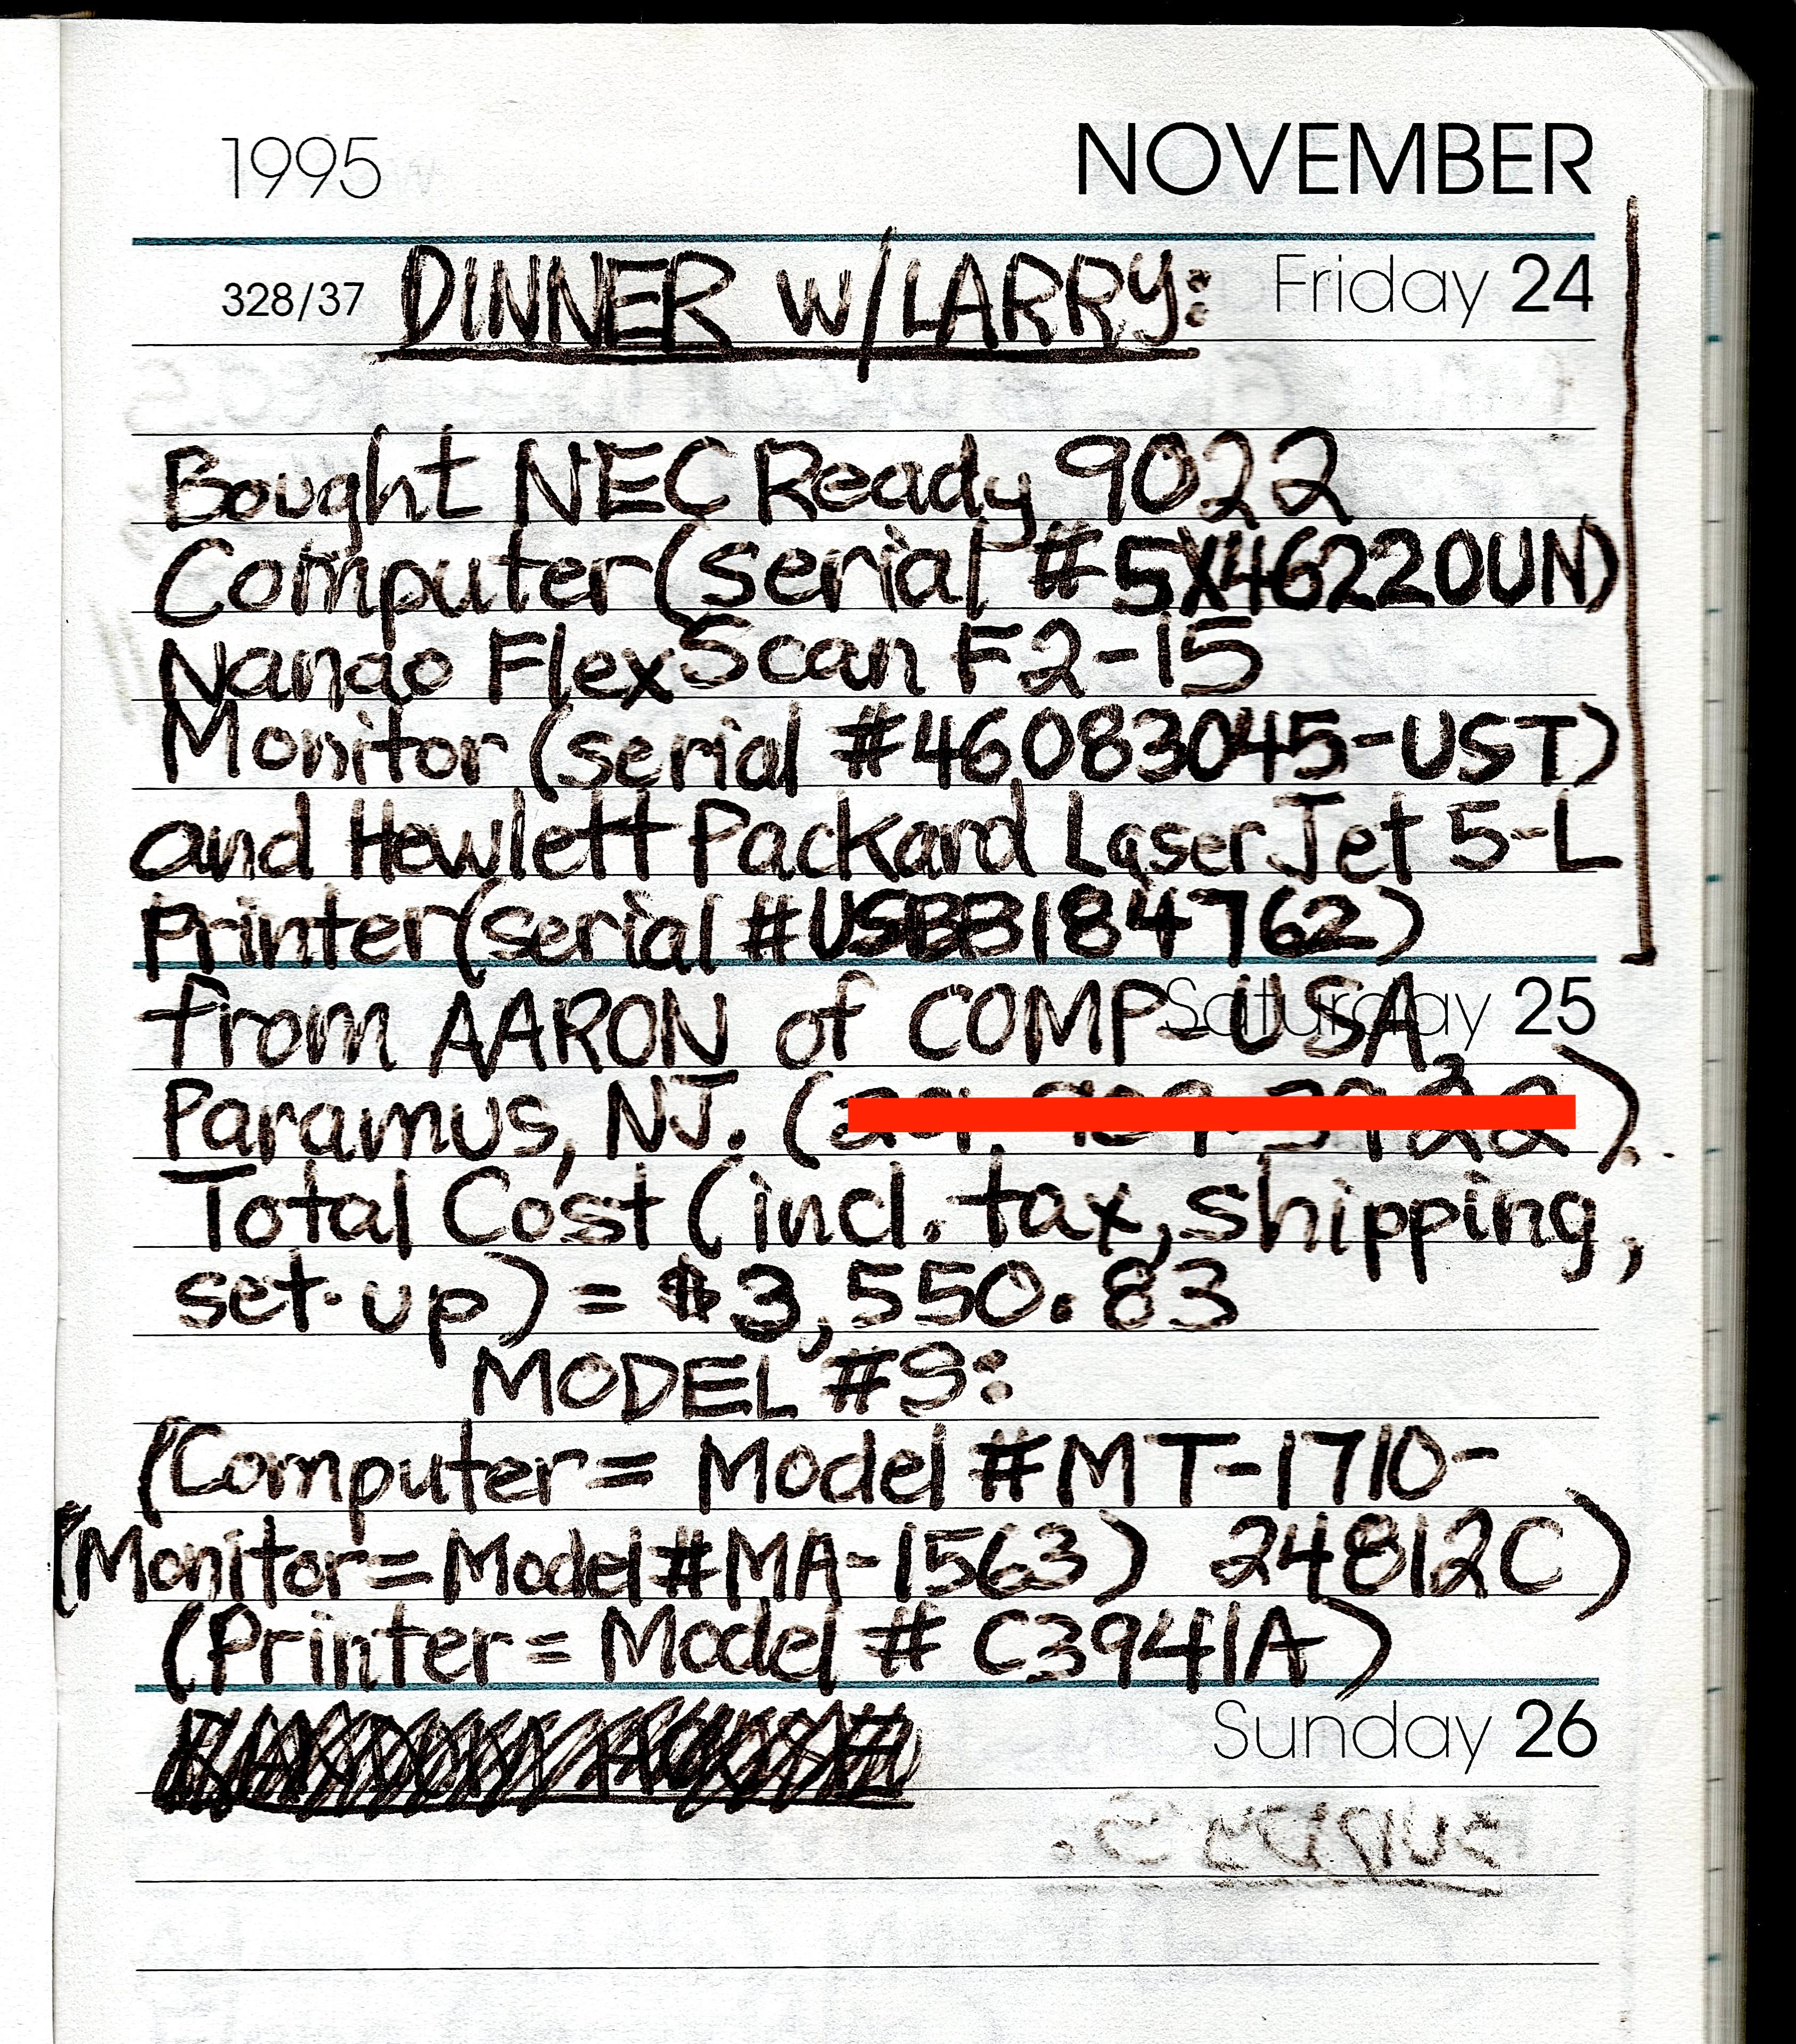 1995 NOVEMBER
328/37 DINNER W/LARRY: Friday 24
Bought NEC Ready 9022
Computer (serial #5X46220UN)
Nanao FlexScan F2-15
Monitor (serial #46083045-UST)
and Hewlett Packard LaserJet 5-L
Printer (serial #USBB184762)
from AARON of COMP-USA, Saturday 25
Paramus, NJ. ( ).
Total Cost (incl. tax, shipping,
set-up) = $3,550.83
MODEL #S:
(Computer = Model #MT-1710-
(Monitor = Model #MA-1563) 24812C)
(Printer = Model # C3941A)
Sunday 26